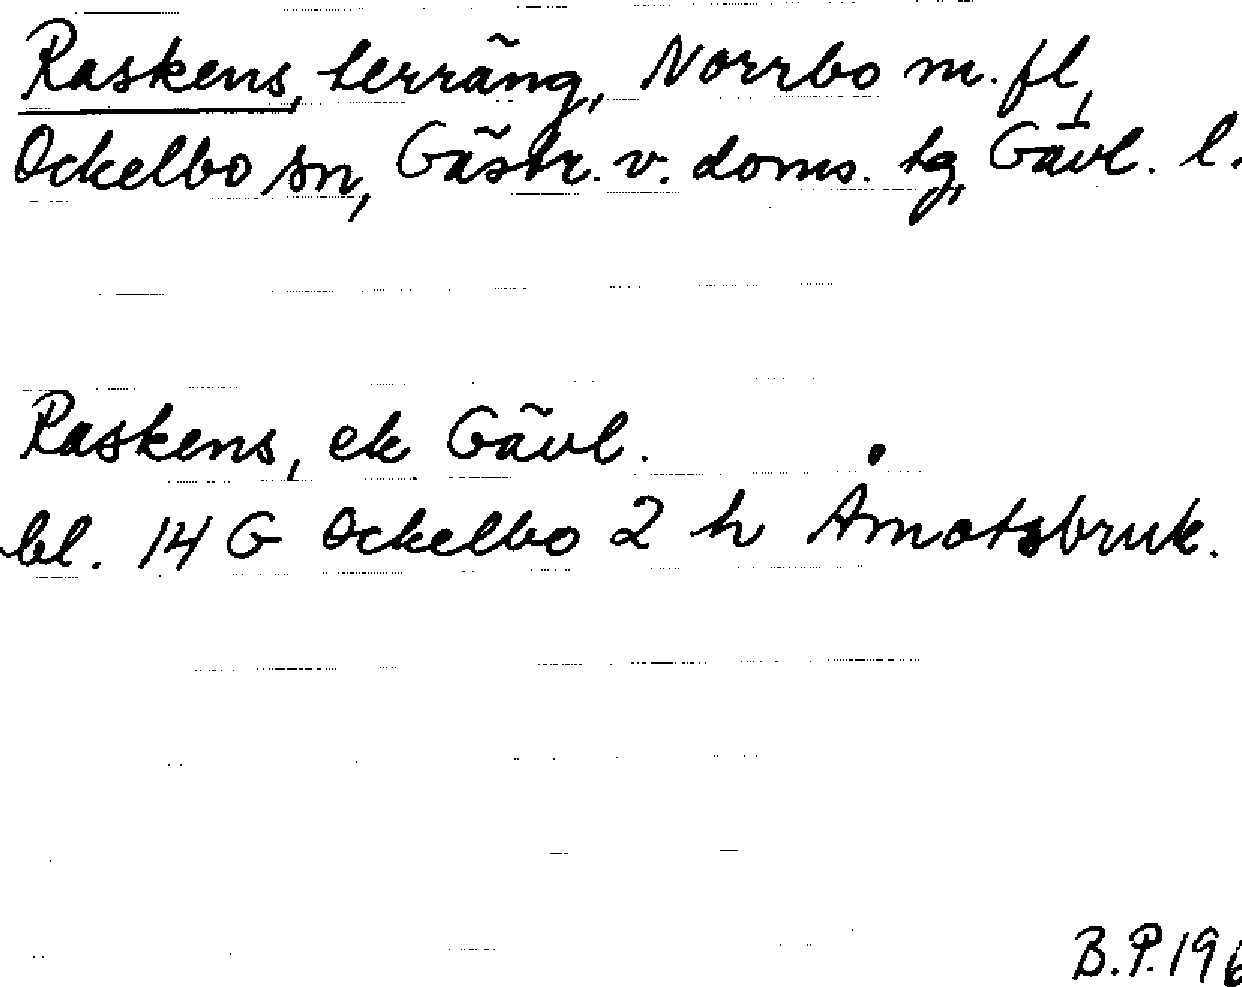 Raskens, terräng, Norrbo m.fl,
Ockelbo sn, Gästr. v. doms. tg, Gävl. l.
Raskens, ek Gävl.
bl. 14 G Ockelbo 2 h Åmotsbruk.
B.P. 196